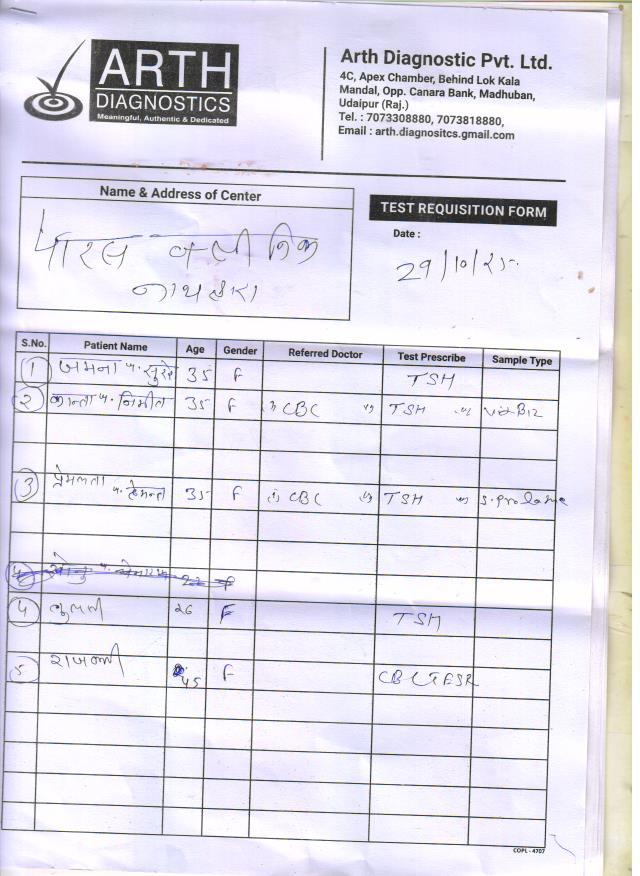 ARTH
DIAGNOSTICS
Meaningful, Authentic & Dedicated
Arth Diagnostic Pvt. Ltd.
4C, Apex Chamber, Behind Lok Kala
Mandal, Opp. Canara Bank, Madhuban,
Udaipur (Raj.)
Tel. : 7073308880, 7073818880,
Email : arth.diagnositcs.gmail.com
Name & Address of Center
पारस क्लीनिक
TEST REQUISITION FORM
Date :
29/10/25
S.No. Patient Name Age Gender Referred Doctor Test Prescribe Sample Type
1 जमना प. 35 F TSH
2 कान्ता प. 35 F (i) CBC (ii) TSH (iii) Vit-B12
3 प्रेमलता प. हेमन्त 35 F (i) CBC (ii) TSH (iii)
4 26 F TSH
5 45 F CBC ESR
COPL - 4707